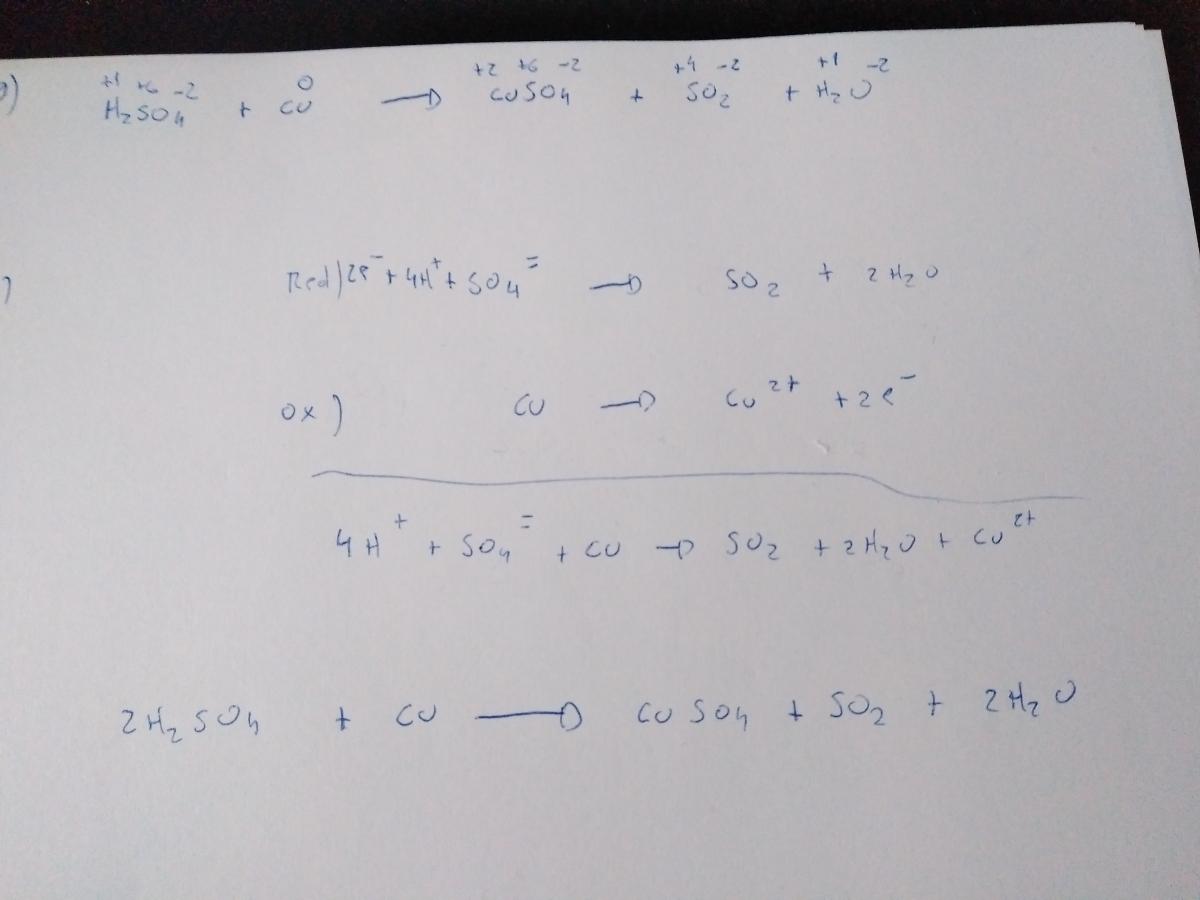 +1 +6 -2 0 +2 +6 -2 +4 -2 +1 -2
H₂SO₄ + CU → CUSO₄ + SO₂ + H₂O
Red) 2e⁻ + 4H⁺ + SO₄⁼ → SO₂ + 2H₂O
OX) CU → CU²⁺ + 2e⁻
4H⁺ + SO₄⁼ + CU → SO₂ + 2H₂O + CU²⁺
2H₂SO₄ + CU → CUSO₄ + SO₂ + 2H₂O